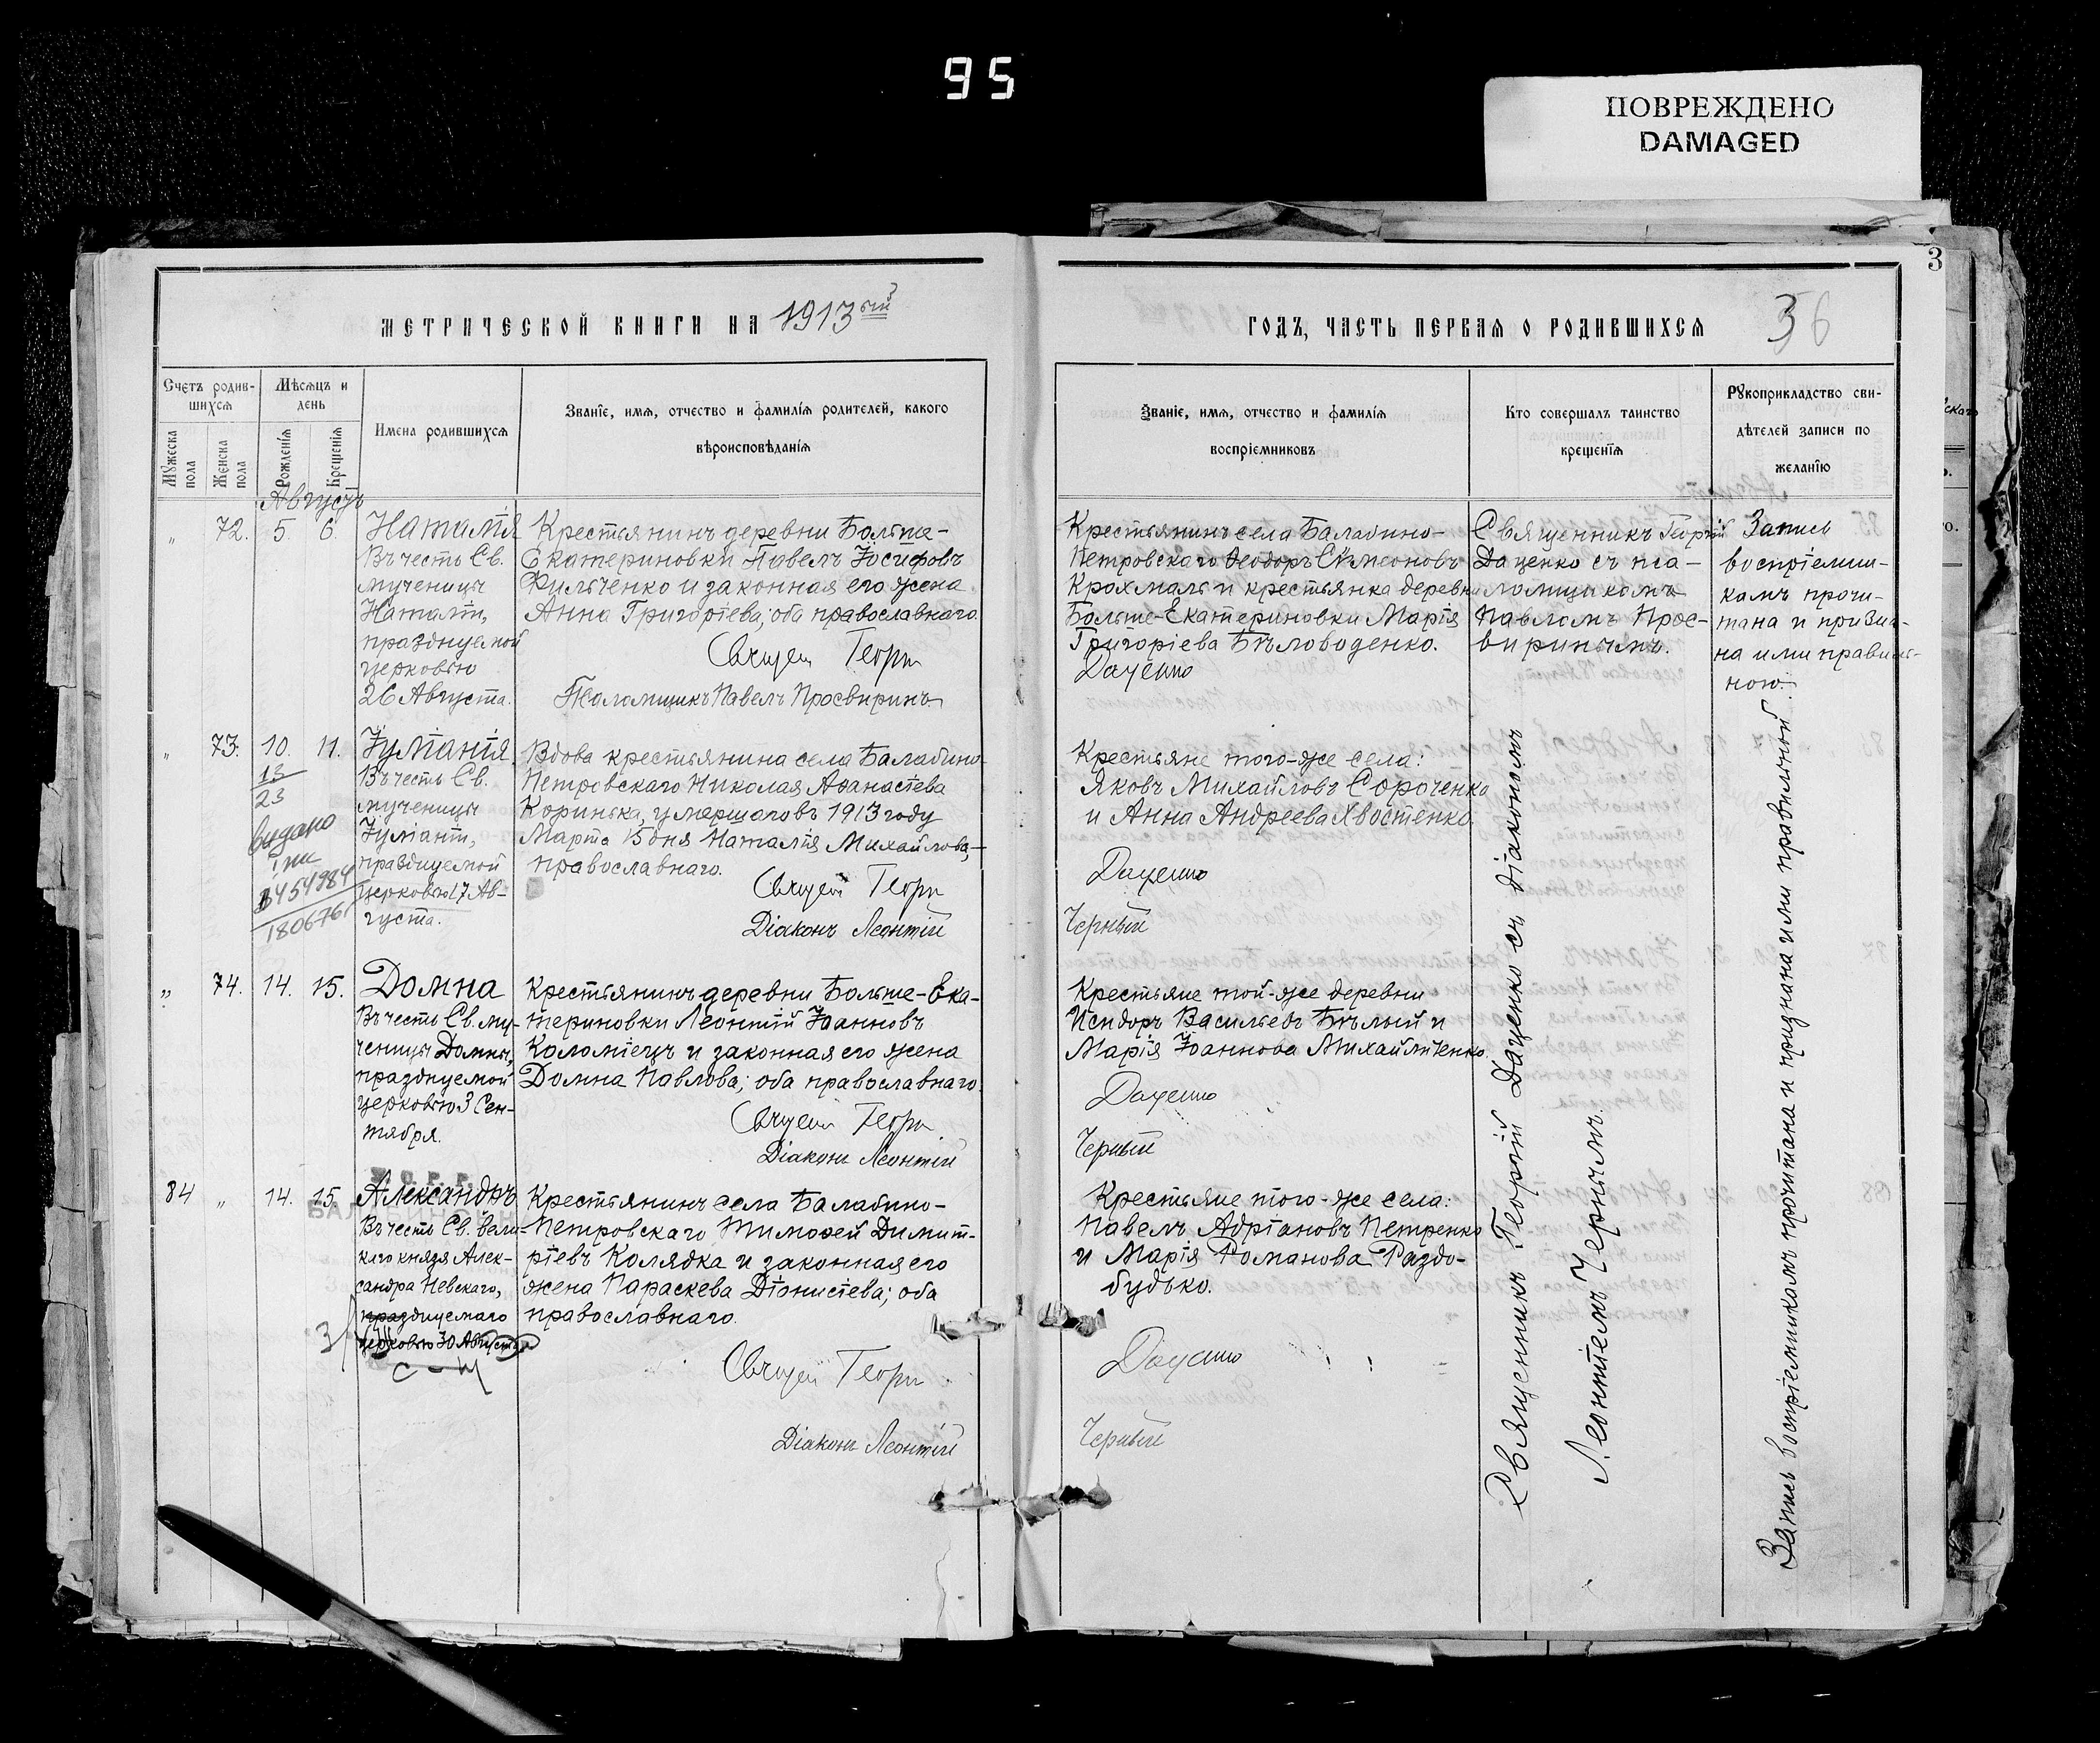 95
ПОВРЕЖДЕНО
DAMAGED
3
МЕТРИЧЕСКОЙ КНИГИ НА 1913ый
ГОДЪ, ЧАСТЬ ПЕРВАЯ О РОДИВШИХСЯ
36
Счетъ родив-
шихся
Мужеска
пола
Женска
пола
Мѣсяцъ и
день
Рожденія
Крещенія
Имена родившихся
Званіе, имя, отчество и фамилія родителей, какого
вѣроисповѣданія
Званіе, имя, отчество и фамилія
воспріемниковъ
Кто совершалъ таинство
крещенія
Рукоприкладство сви-
дѣтелей записи по
желанію
Августъ
„ 72. 5. 6.
Наталія
Въ честь Св.
мученицы
Наталіи,
празднуемой
церковью
26 Августа.
Крестьянинъ деревни Больше-
Екатериновки Павелъ Іосифовъ
Фильченко и законная его жена
Анна Григоріева; оба православнаго.
Священ Георги
Псаломщикъ Павелъ Просвиринъ
Крестьянинъ села Балабино-
Петровскаго Ѳеодоръ Симеоновъ
Крохмаль и крестьянка деревни
Больше-Екатериновки Марія
Григоріева Бѣловоденко.
Даценко
Священникъ Георгій
Даценко съ пса-
ломщикомъ
Павломъ Прос-
виринымъ.
Запись
воспріемни-
камъ прочи-
тана и призна-
на ими правиль-
ною.
„ 73. 10. 11.
13
23
видано
1454984
1806761
Іуліанія
Въ честь Св.
мученицы
Іуліаніи,
празднуемой
церковью 17 Ав-
густа.
Вдова крестьянина села Балабино-
Петровскаго Николая Аѳанасіева
Коринька, умершаго въ 1913 году
Марта 15 дня Наталія Михайлова,
православнаго.
Священ Георги
Діаконъ Леонтій
Крестьяне того-же села:
Яковъ Михайловъ Сороченко
и Анна Андреева Хвостенко.
Даценко
Черный
„ 74. 14. 15.
Домна
Въ честь Св. му-
ченицы Домны,
празднуемой
церковью 3 Сен-
тября.
Крестьянинъ деревни Больше-Ека-
териновки Леонтій Іоанновъ
Коломіецъ и законная его жена
Домна Павлова; оба православнаго.
Священ Георги
Діаконъ Леонтій
Крестьяне той-же деревни
Исидоръ Васильевъ Бѣлый и
Марія Іоаннова Михайличенко.
Даценко
Черный
84 „ 14. 15.
Александръ
Въ честь Св. вели-
каго князя Алек-
сандра Невскаго,
празднуемаго
церковью 30 Августа
Крестьянинъ села Балабино-
Петровскаго Тимоѳей Димит-
ріевъ Колядка и законная его
жена Параскева Діонисіева; оба
православнаго.
Священ Георги
Діаконъ Леонтій
Крестьяне того-же села:
Павелъ Адріановъ Петренко
и Марія Романова Раздо-
будько.
Даценко
Черный
Священникъ Георгій Даценко съ діакономъ
Леонтіемъ Чернымъ.
Запись воспріемникамъ прочитана и признана ими правильной.